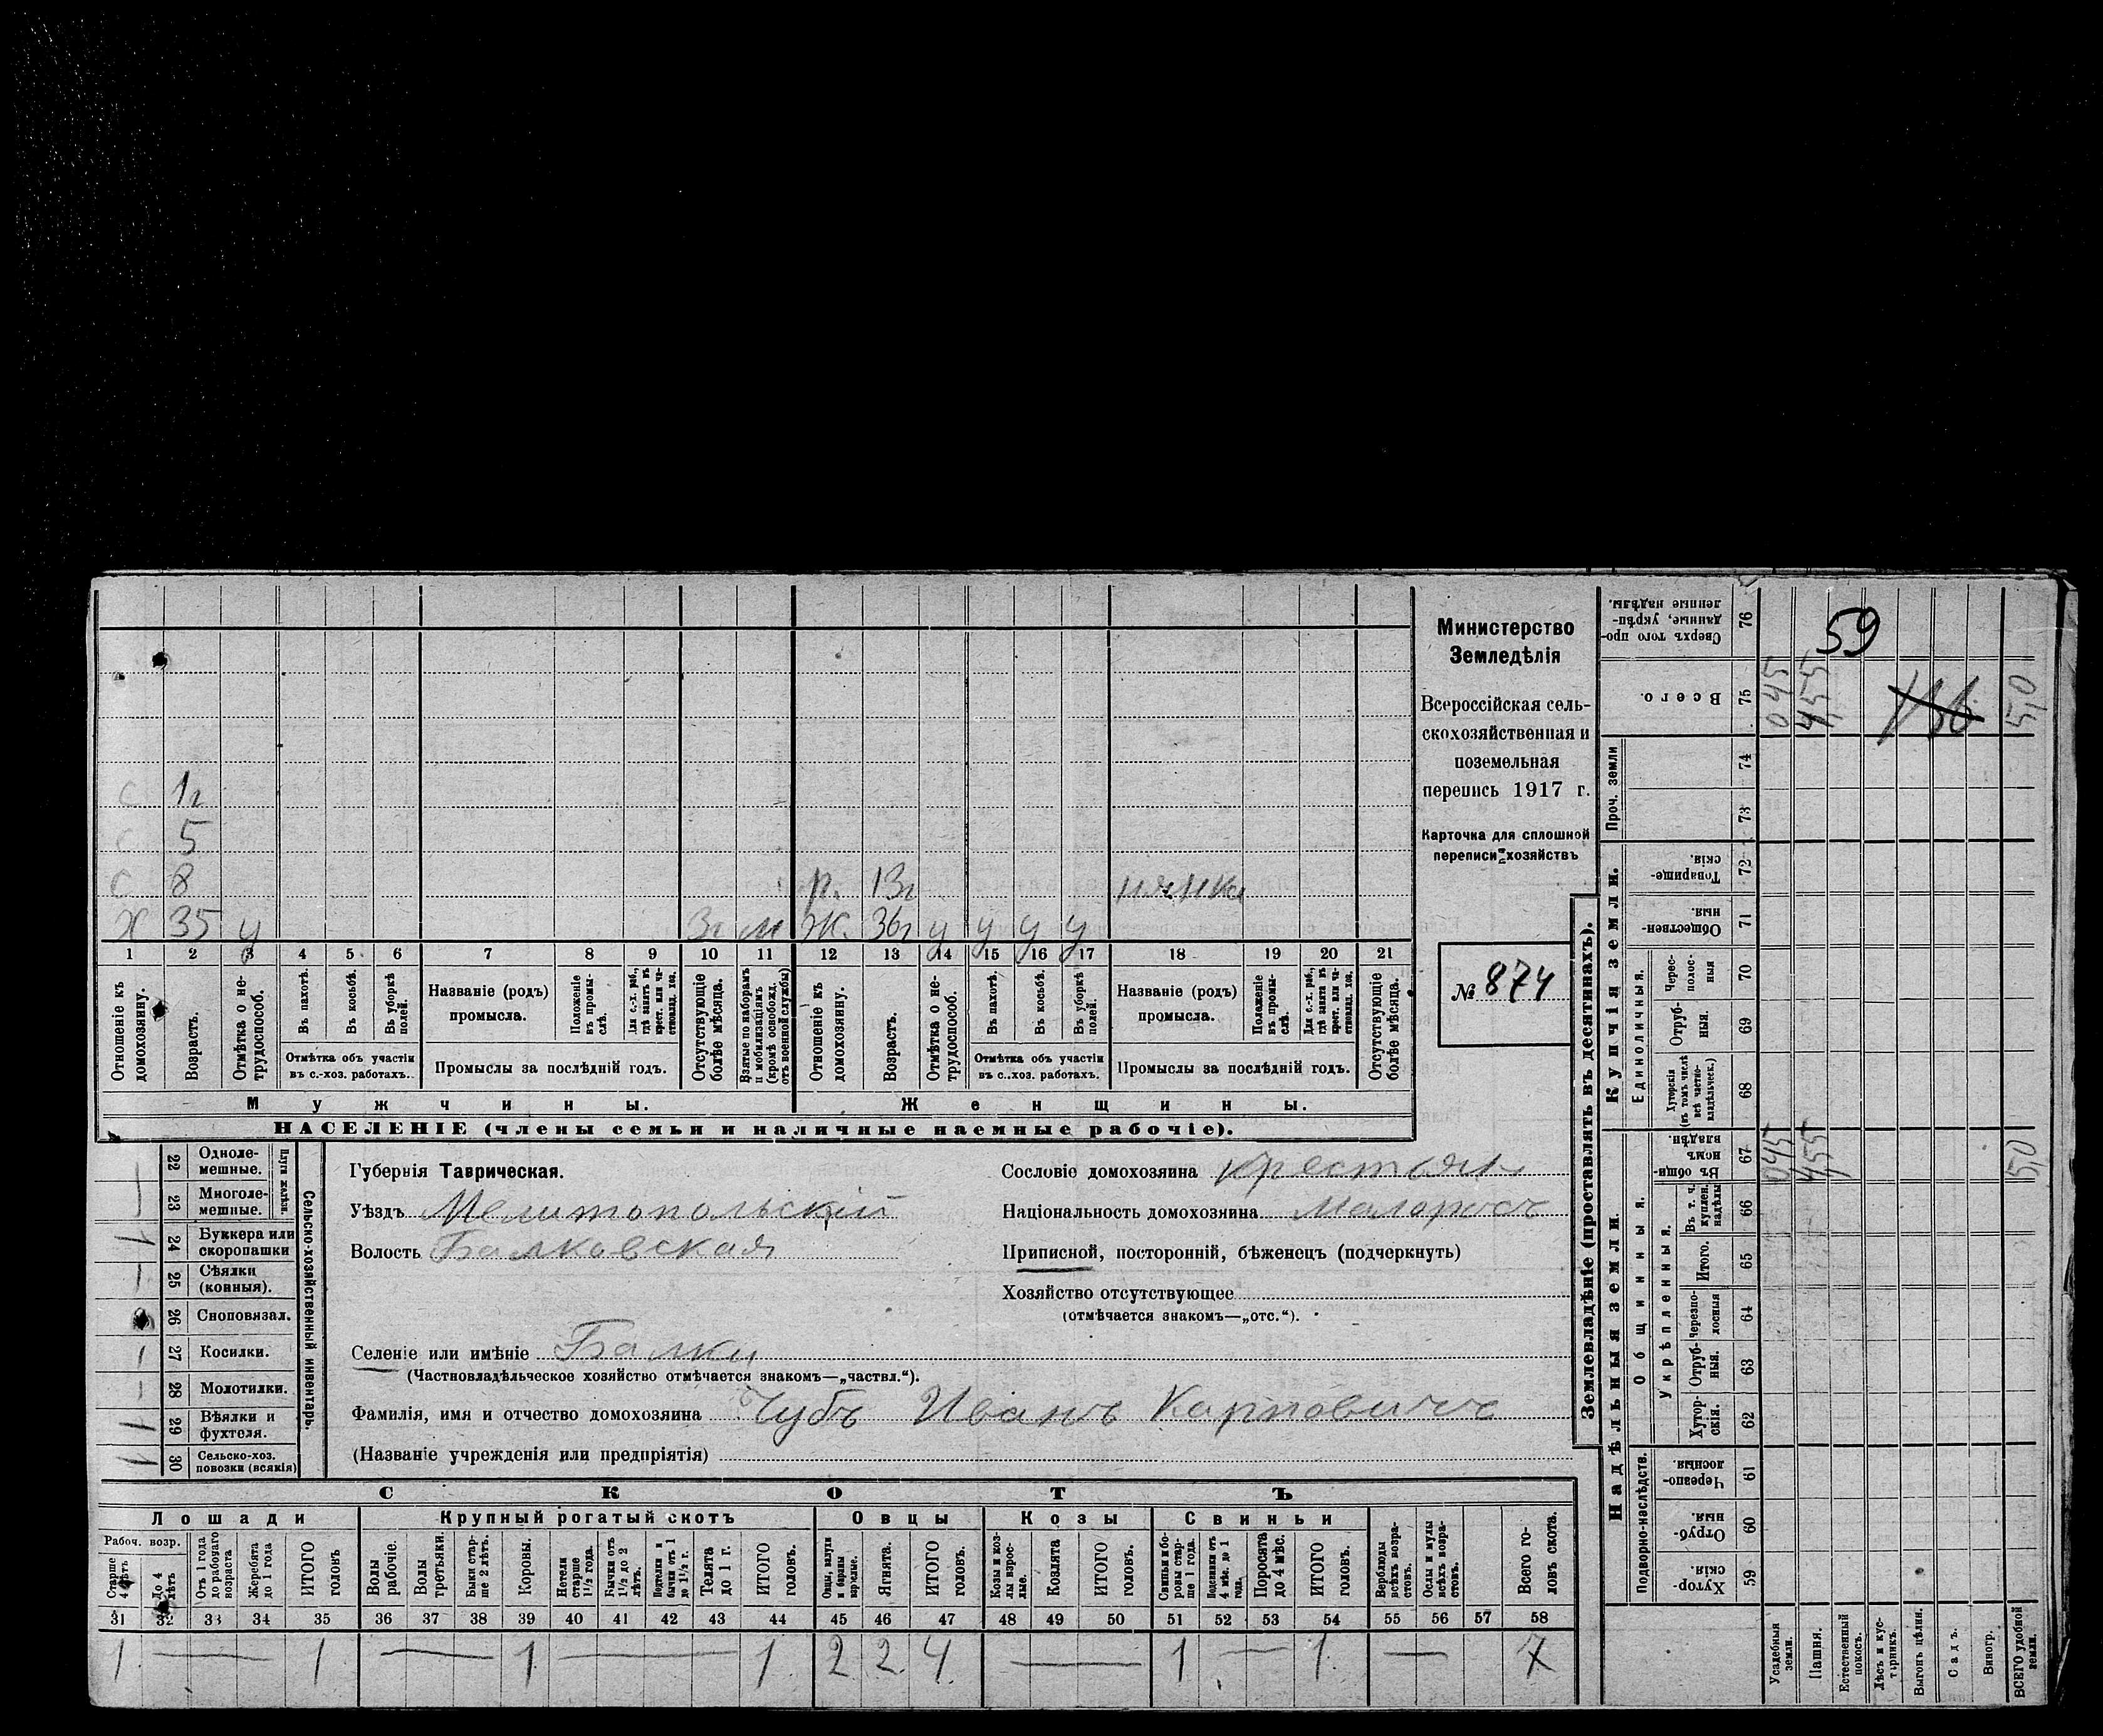 Министерство
Земледѣлія
Всероссійская сель-
скохозяйственная и
поземельная
перепись 1917 г.
Карточка для сплошной
переписи хозяйствъ
№ 874
с 1г
с 5
с 8 р. 13г нянька
Х 35 у 3г м Ж. 36г у у у у
1 2 3 4 5 6 7 8 9 10 11 12 13 14 15 16 17 18 19 20 21
Отношеніе къ домохозяину.
Возрастъ.
Отмѣтка о не-трудоспособ.
Въ пахотѣ.
Въ косьбѣ.
Въ уборкѣ полей.
Отмѣтка объ участіи въ с.-хоз. работахъ.
Названіе (родъ) промысла.
Положеніе въ промы-слѣ.
Для с.-х. раб., гдѣ занятъ въ крест. или ча-стновлад. хоз.
Промыслы за послѣдній годъ.
Отсутствующіе болѣе мѣсяца.
Взятые по наборамъ и мобилизаціямъ (кромѣ освобожд. отъ военной службы)
Отношеніе къ домохозяину.
Возрастъ.
Отмѣтка о не-трудоспособ.
Въ пахотѣ.
Въ косьбѣ.
Въ уборкѣ полей.
Отмѣтка объ участіи въ с.-хоз. работахъ.
Названіе (родъ) промысла.
Положеніе въ промы-слѣ.
Для с.-х. раб., гдѣ занята въ крест. или ча-стновлад. хоз.
Промыслы за послѣдній годъ.
Отсутствующіе болѣе мѣсяца.
Мужчины. Женщины.
НАСЕЛЕНІЕ (члены семьи и наличные наемные рабочіе).
Сельско-хозяйственный инвентарь.
Плуги желѣзн.
22 Одноле-мешные.
23 Многоле-мешные.
24 Буккера или скоропашки 1
25 Сѣялки (конныя).
26 Сноповязал.
27 Косилки.
28 Молотилки.
29 Вѣялки и фухтеля. 1
30 Сельско-хоз. повозки (всякія) 1
Губернія Таврическая.
Уѣздъ Мелитопольскій
Волость Балковская
Селеніе или имѣніе Балки
(Частновладѣльческое хозяйство отмѣчается знакомъ—„частвл.“).
Фамилія, имя и отчество домохозяина Чубъ Иванъ Карповичъ
(Названіе учрежденія или предпріятія)
Сословіе домохозяина крестьян
Національность домохозяина Малороссъ
Приписной, посторонній, бѣженецъ (подчеркнуть)
Хозяйство отсутствующее
(отмѣчается знакомъ—„отс.“).
СКОТЪ
Лошади Крупный рогатый скотъ Овцы Козы Свиньи
Рабоч. возр.
Старше 4 лѣтъ
До 4 лѣтъ
Отъ 1 года до рабочаго возраста
Жеребята до 1 года
ИТОГО головъ
Волы рабочіе.
Волы третьяки.
Быки стар-ше 2 лѣтъ.
Коровы.
Нетели старше 1½ года.
Бычки отъ 1½ до 2 лѣтъ.
Подтелки и бычки отъ 1 до 1½ г.
Телята до 1 г.
ИТОГО головъ.
Овцы, валухи и бараны взрослые.
Ягнята.
ИТОГО головъ.
Козы и коз-лы взрос-лые.
Козлята
ИТОГО головъ.
Свиньи и бо-ровы стар-ше 1 года.
Подсвинки отъ 4 мѣс. до 1 года.
Поросята до 4 мѣс.
ИТОГО головъ.
Верблюды всѣхъ возра-стовъ.
Ослы и мулы всѣхъ возра-стовъ.
Всего го-ловъ скота.
31 32 33 34 35 36 37 38 39 40 41 42 43 44 45 46 47 48 49 50 51 52 53 54 55 56 57 58
1 — 1 — 1 — 1 2 2 4 — 1 — 1 — 7
Землевладѣніе (проставлять въ десятинахъ).
Надѣльныя земли.
Купчія земли.
Проч. земли
Подворно-наслѣдств.
Общинныя.
Укрѣпленныя.
Единоличныя.
76 Сверхъ того про-данные, укрѣп-ленные надѣлы.
75 Всего. 0,45 4,55 5,0
74
73
72 Товарище-скія.
71 Обществен-ныя.
70 Черес-полос-ныя
69 Отруб-ныя.
68 Хуторскія (въ томъ числѣ всѣ частно-владѣльческ.)
67 Въ общин-номъ владѣн. 0,45 4,55 5,0
66 Въ т. ч. куплен. надѣлы
65 Итого.
64 Черезпо-лосныя
63 Отруб-ныя.
62 Хутор-скія.
61 Черезпо-лосныя.
60 Отруб-ныя.
59 Хутор-скія.
Усадебныя земли.
Пашня.
Естественный покосъ.
Лѣсъ и кус-тарникъ.
Выгонъ цѣлин.
Садъ.
Виногр.
ВСЕГО удобной земли.
59